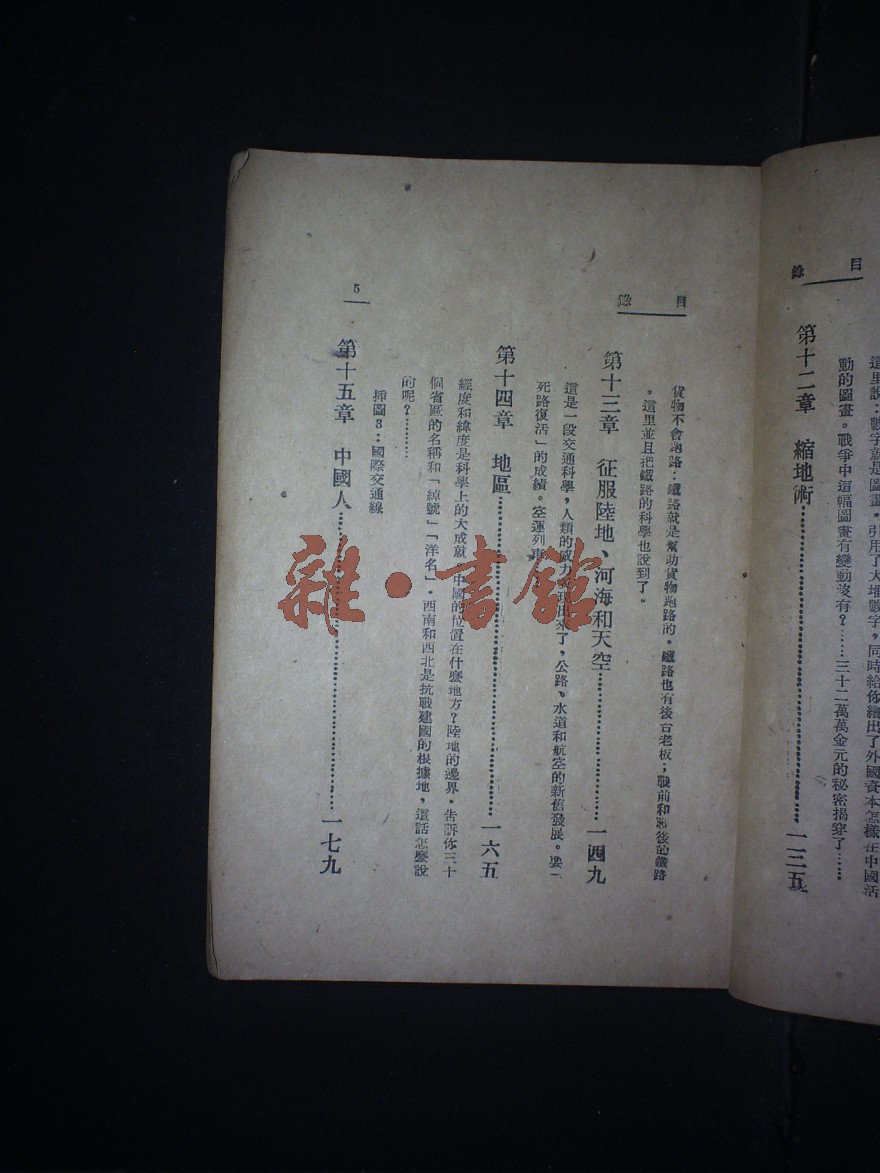 目錄
這里說：數字就是圖畫。引用了大堆數字，同時給你繪出了外國資本怎樣在中國活
動的圖畫。戰爭中這幅圖畫有變動沒有？……三十二萬萬金元的秘密揭穿了……
第十二章　縮地術…………一三五
目錄
貨物不會跑路：鐵路就是幫助貨物跑路的。鐵路也有後台老板；戰前和戰後的鐵路
。這里並且把鐵路的科學也說到了。
第十三章　征服陸地、河海和天空…………一四九
這是一段交通科學，人類的威力表現出來了，公路、水道和航空的新舊發展。要「
死路復活」的成績。空運列車
第十四章　地區…………一六五
經度和緯度是科學上的大成就。中國的位置在什麼地方？陸地的邊界。告訴你三十
個省區的名稱和「綽號」「洋名」。西南和西北是抗戰建國的根據地，這話怎麼說
的呢？………
挿圖3：國際交通線
第十五章　中國人…………一七九
5
雜·書館